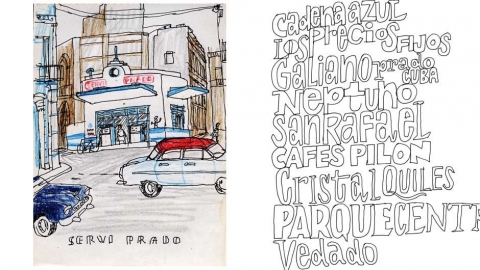 SERVI PRADO
cadena azul
LOS precios FIJOS
Galiano prado
CUBA
Neptuno
San Rafael
CAFES PILON
Cristal QUILES
PARQUECENT
Vedado